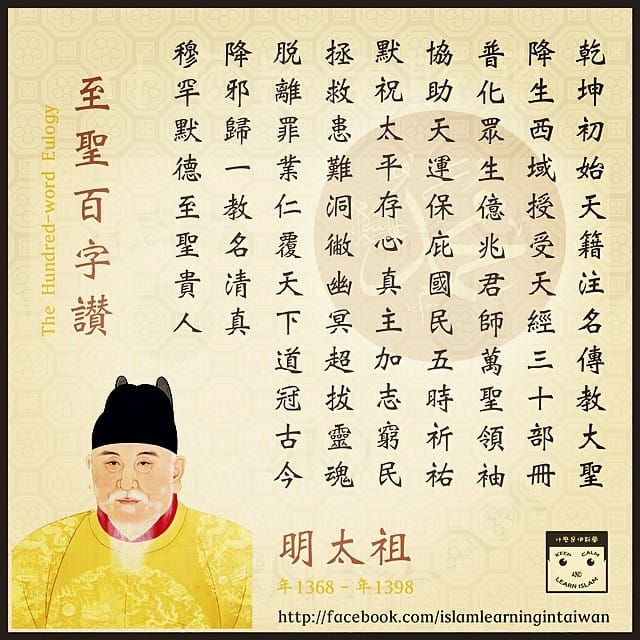 乾坤初始天籍注名傳教大聖
降生西域授受天經三十部冊
普化眾生億兆君師萬聖領袖
協助天運保庇國民五時祈祐
默祝太平存心真主加志窮民
拯救患難洞徹幽冥超拔靈魂
脫離罪業仁覆天下道冠古今
降邪歸一教名清真
穆罕默德至聖貴人
至聖百字讃
The Hundred-word Eulogy
明太祖
年1368 - 年1398
什麼是伊斯蘭
KEEP CALM
AND
LEARN ISLAM
http://facebook.com/islamlearningintaiwan